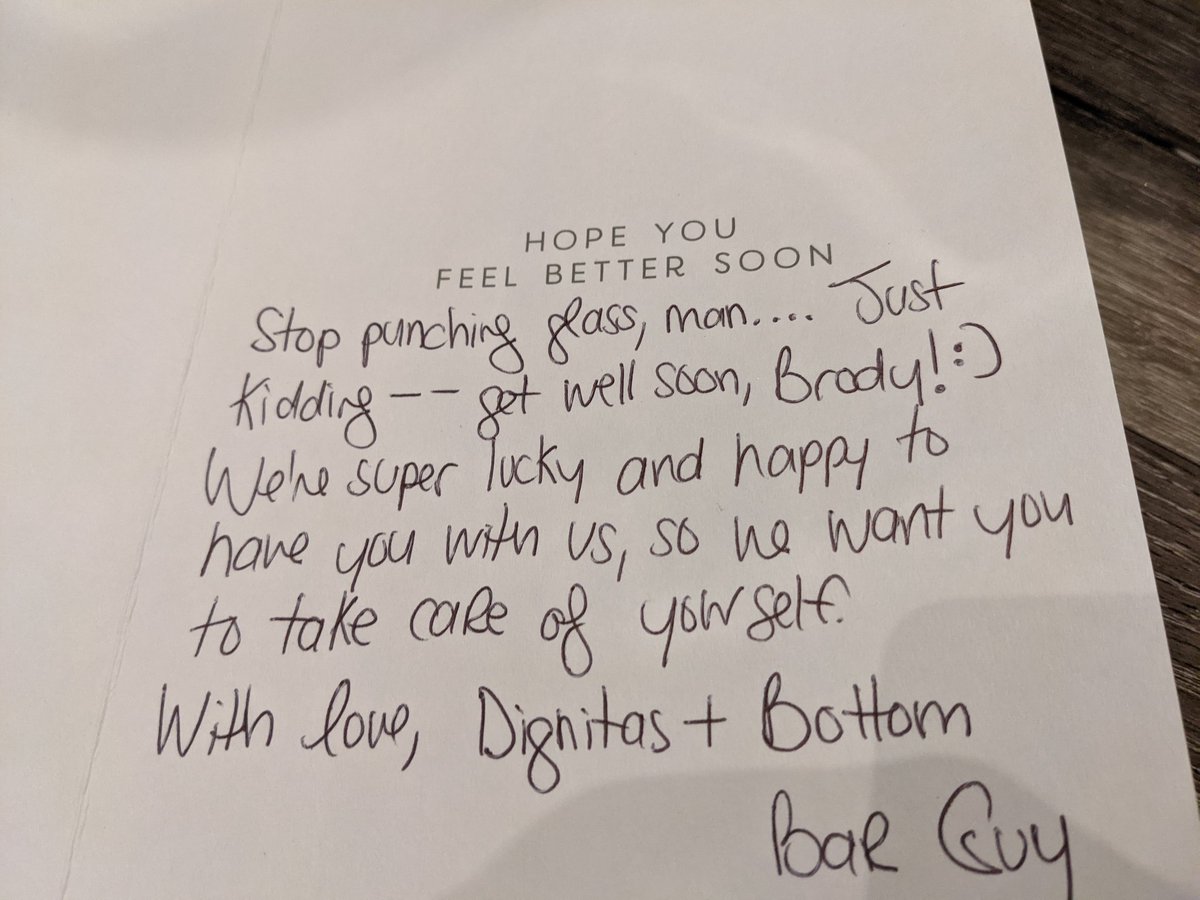 HOPE YOU
FEEL BETTER SOON
Stop punching glass, man.... Just
Kidding -- get well soon, Brody! :)
We're super lucky and happy to
have you with us, so we want you
to take care of yourself.
With love, Dignitas + Bottom
Bar Guy